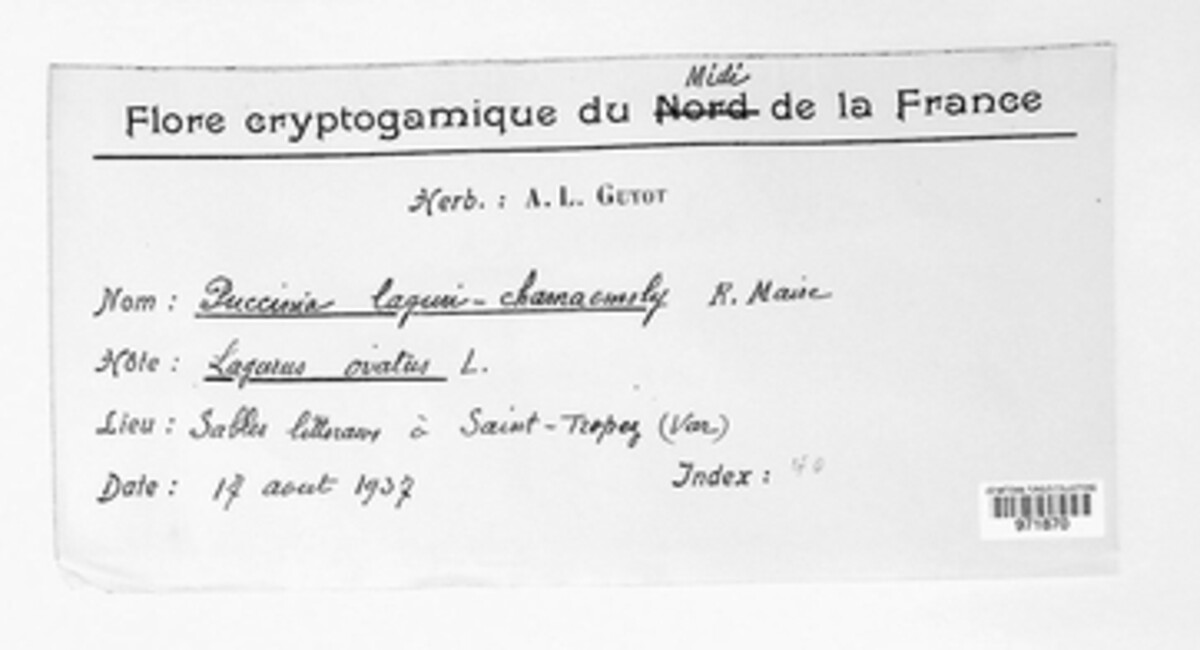 Midi
Flore cryptogamique du Nord de la France
Herb. : A. L. GUYOT
Nom : Puccinia laguri-chamaemoly R. Maire
Hôte : Lagurus ovatus L.
Lieu : Sables littoraux à Saint-Tropez (Var)
Date : 17 aout 1937
Index :
971870